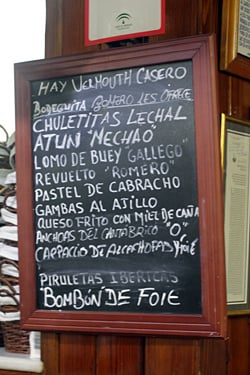 HAY VERMOUTH CASERO
BODEGUITA ROMERO LES OFRECE
CHULETITAS LECHAL
ATUN "MECHAO"
LOMO DE BUEY "GALLEGO"
REVUELTO "ROMERO"
PASTEL DE CABRACHO
GAMBAS AL AJILLO
QUESO FRITO CON MIEL DE CAÑA
ANCHOAS DEL CANTABRICO "O"
CARPACCIO DE ALCACHOFAS Y FOIE
PIRULETAS IBERICAS
"BOMBÓN" DE FOIE